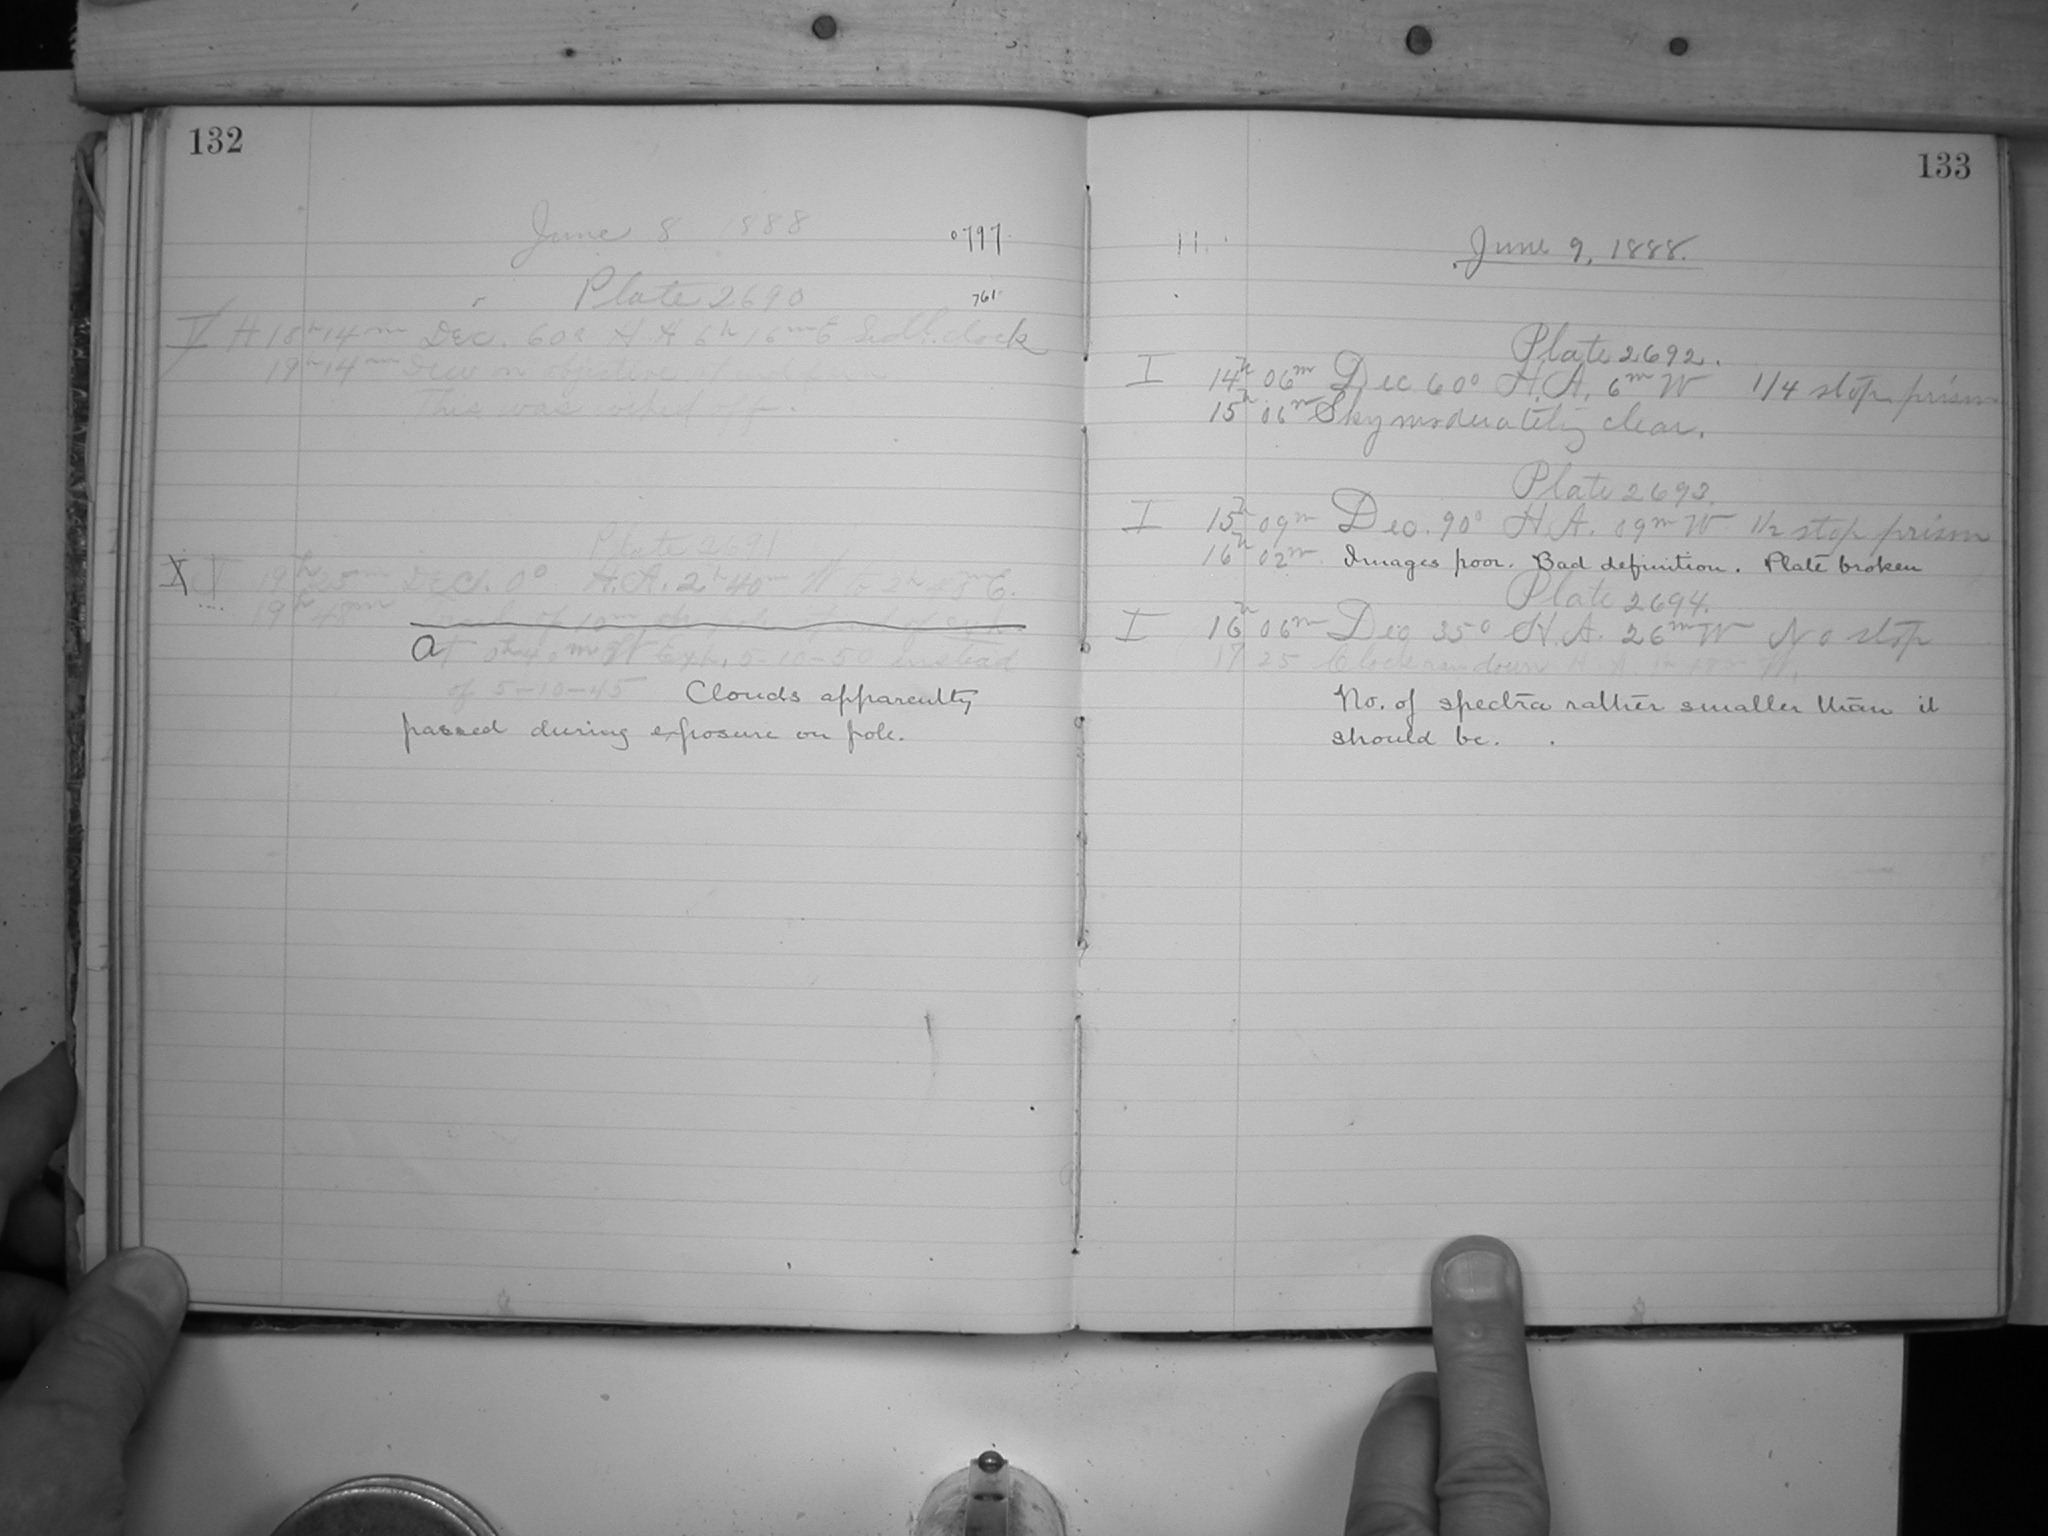 132
June 8 1888
0797
Plate 2690
761
H 18h 14m Dec. 60° H A 6h 16m E Sid. clock
19h 14m Dew on objective
This was
Plate 2691
X V 19h 25m Decl. 0° H.A. 2h 40m W to 2h 48m E.
19h 48m of 10m
At W Exp. 5-10-50 instead
of 5-10-45 Clouds apparently
passed during exposure on pole.
133
11.
June 9, 1888.
Plate 2692.
I 14h 06m Dec 60° H.A. 6m W 1/4 stop prism
15h 06m Sky moderately clear.
Plate 2693.
I 15h 09m Dec. 90° H.A. 09m W 1/2 stop prism
16h 02m Images poor. Bad definition. Plate broken
Plate 2694.
I 16h 06m Dec 35° H.A. 26m W No stop
17 25 Clock ran down H.A. 1h 18m W.
No. of spectra rather smaller than it
should be.